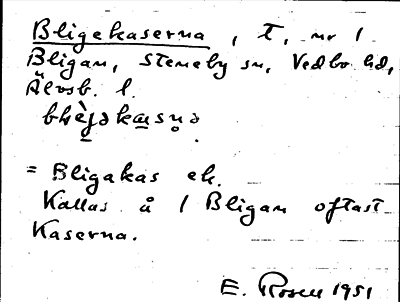 Bligekaserna, T, nr 1
Bligan, Steneby sn, Vedbo hd,
Älvsb. l.
= Bligakas ek.
Kallas å 1 Bligan oftast
Kaserna.
E. Rosen 1951